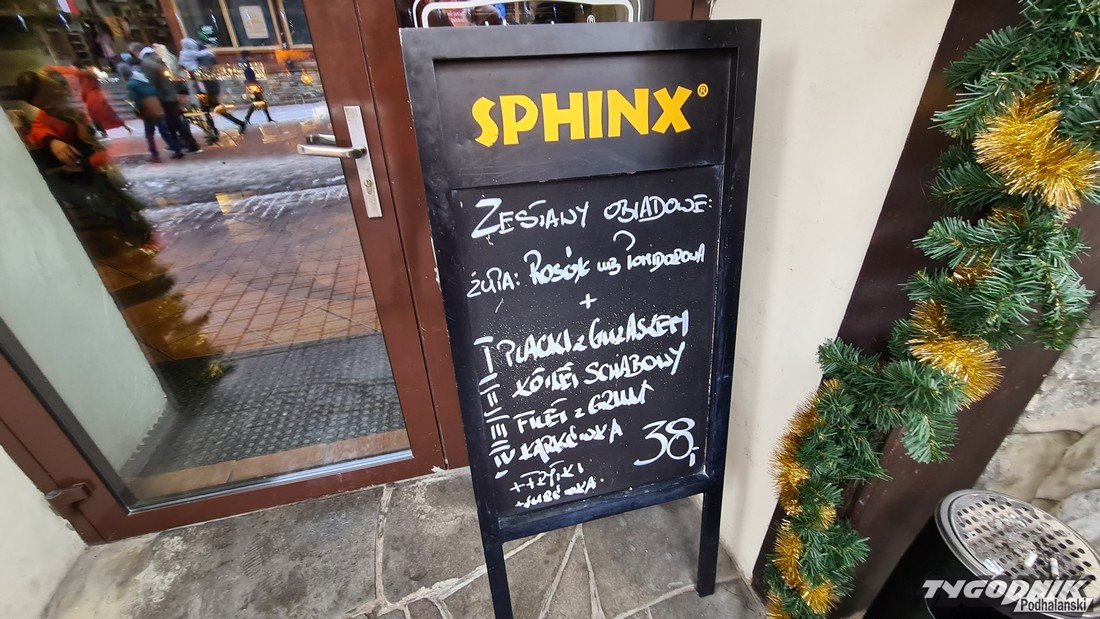 SPHINX®
ZESTAWY OBIADOWE:
ZUPA: ROSÓŁ LUB POMIDOROWA
+
I PLACKI Z GULASZEM
II KOTLET SCHABOWY
III FILET Z GRILLA
IV KARKÓWKA 38,-
+ FRYTKI
+ SURÓWKA
TYGODNIK
Podhalański